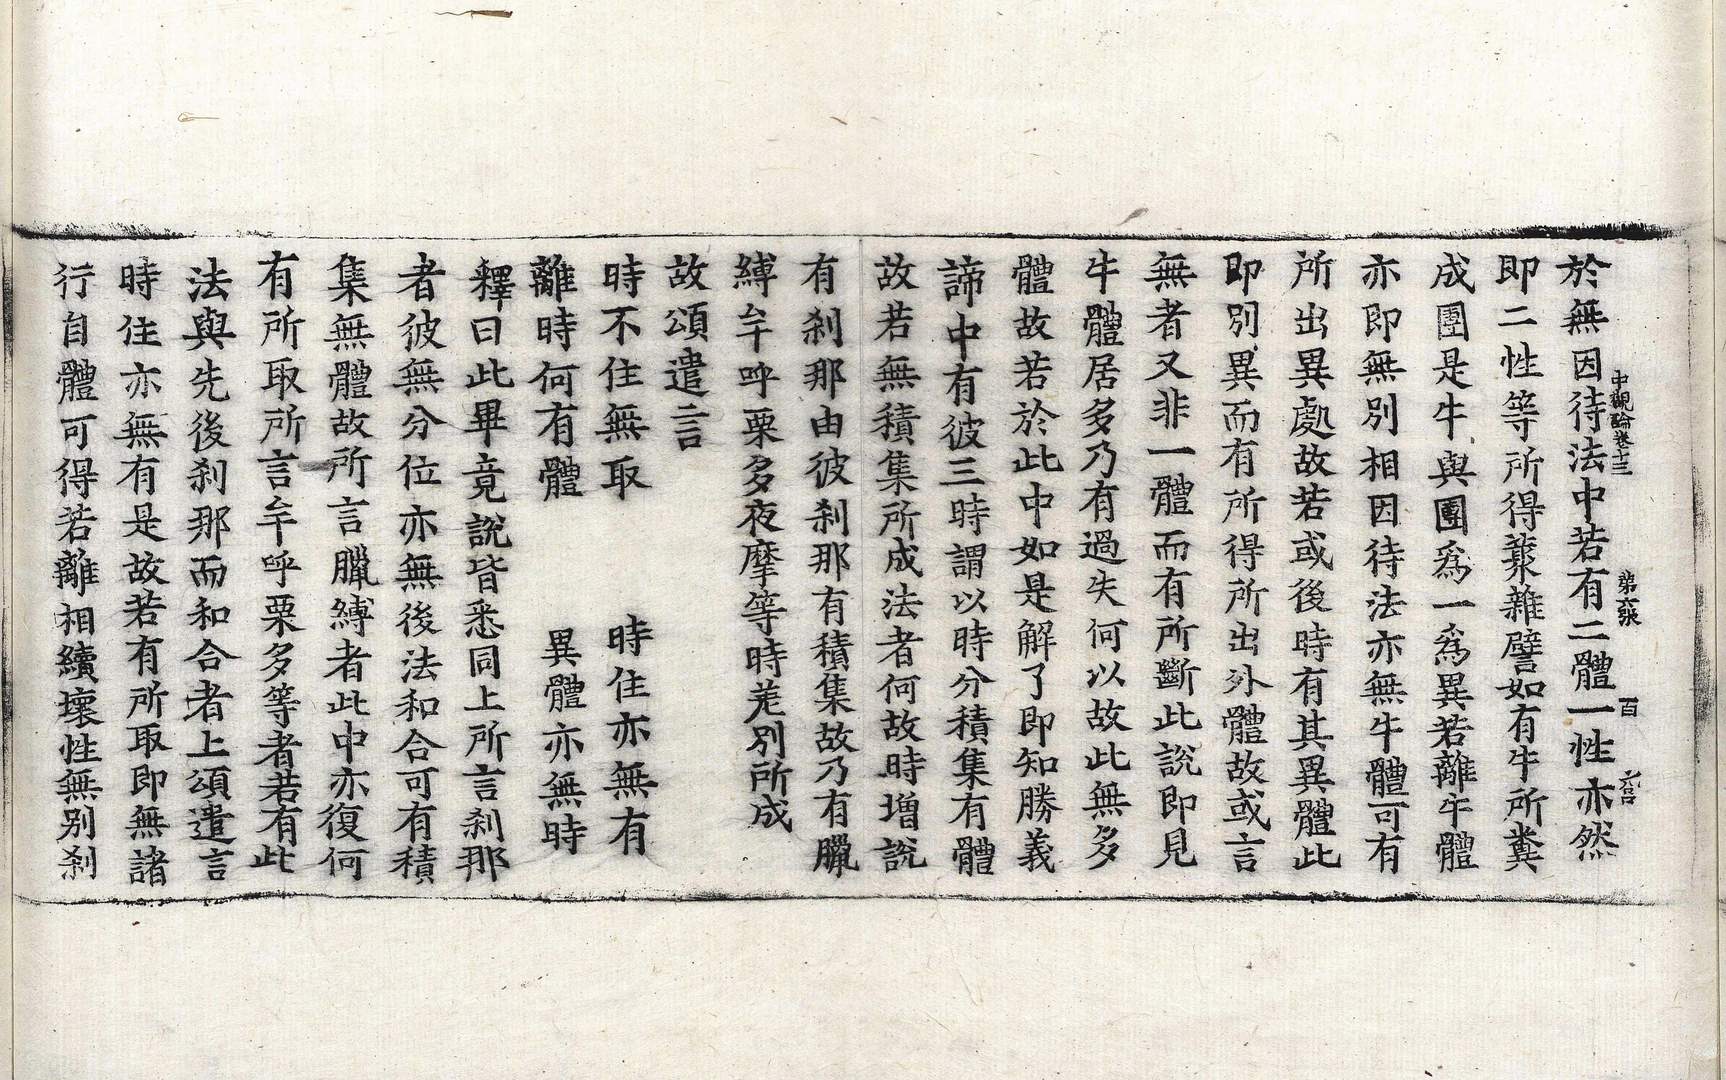 於無因待法中若有二體一性亦然
中觀論卷十三　第六張　百
即二性等所得藂雜譬如有牛所糞
成團是牛與團爲一爲異若離牛體
亦即無別相因待法亦無牛體可有
所出異處故若或後時有其異體此
即別異而有所得所出外體故或言
無者又非一體而有所斷此說即見
牛體居多乃有過失何以故此無多
體故若於此中如是解了即知勝義
諦中有彼三時謂以時分積集有體
故若無積集所成法者何故時增說
有剎那由彼剎那有積集故乃有臘
縛牟呼栗多夜摩等時差別所成
故頌遣言
時不住無取　時住亦無有
離時何有體　異體亦無時
釋曰此畢竟說皆悉同上所言剎那
者彼無分位亦無後法和合可有積
集無體故所言臘縛者此中亦復何
有所取所言牟呼栗多等者若有此
法與先後剎那而和合者上頌遣言
時住亦無有是故若有所取即無諸
行自體可得若離相續壞性無別剎